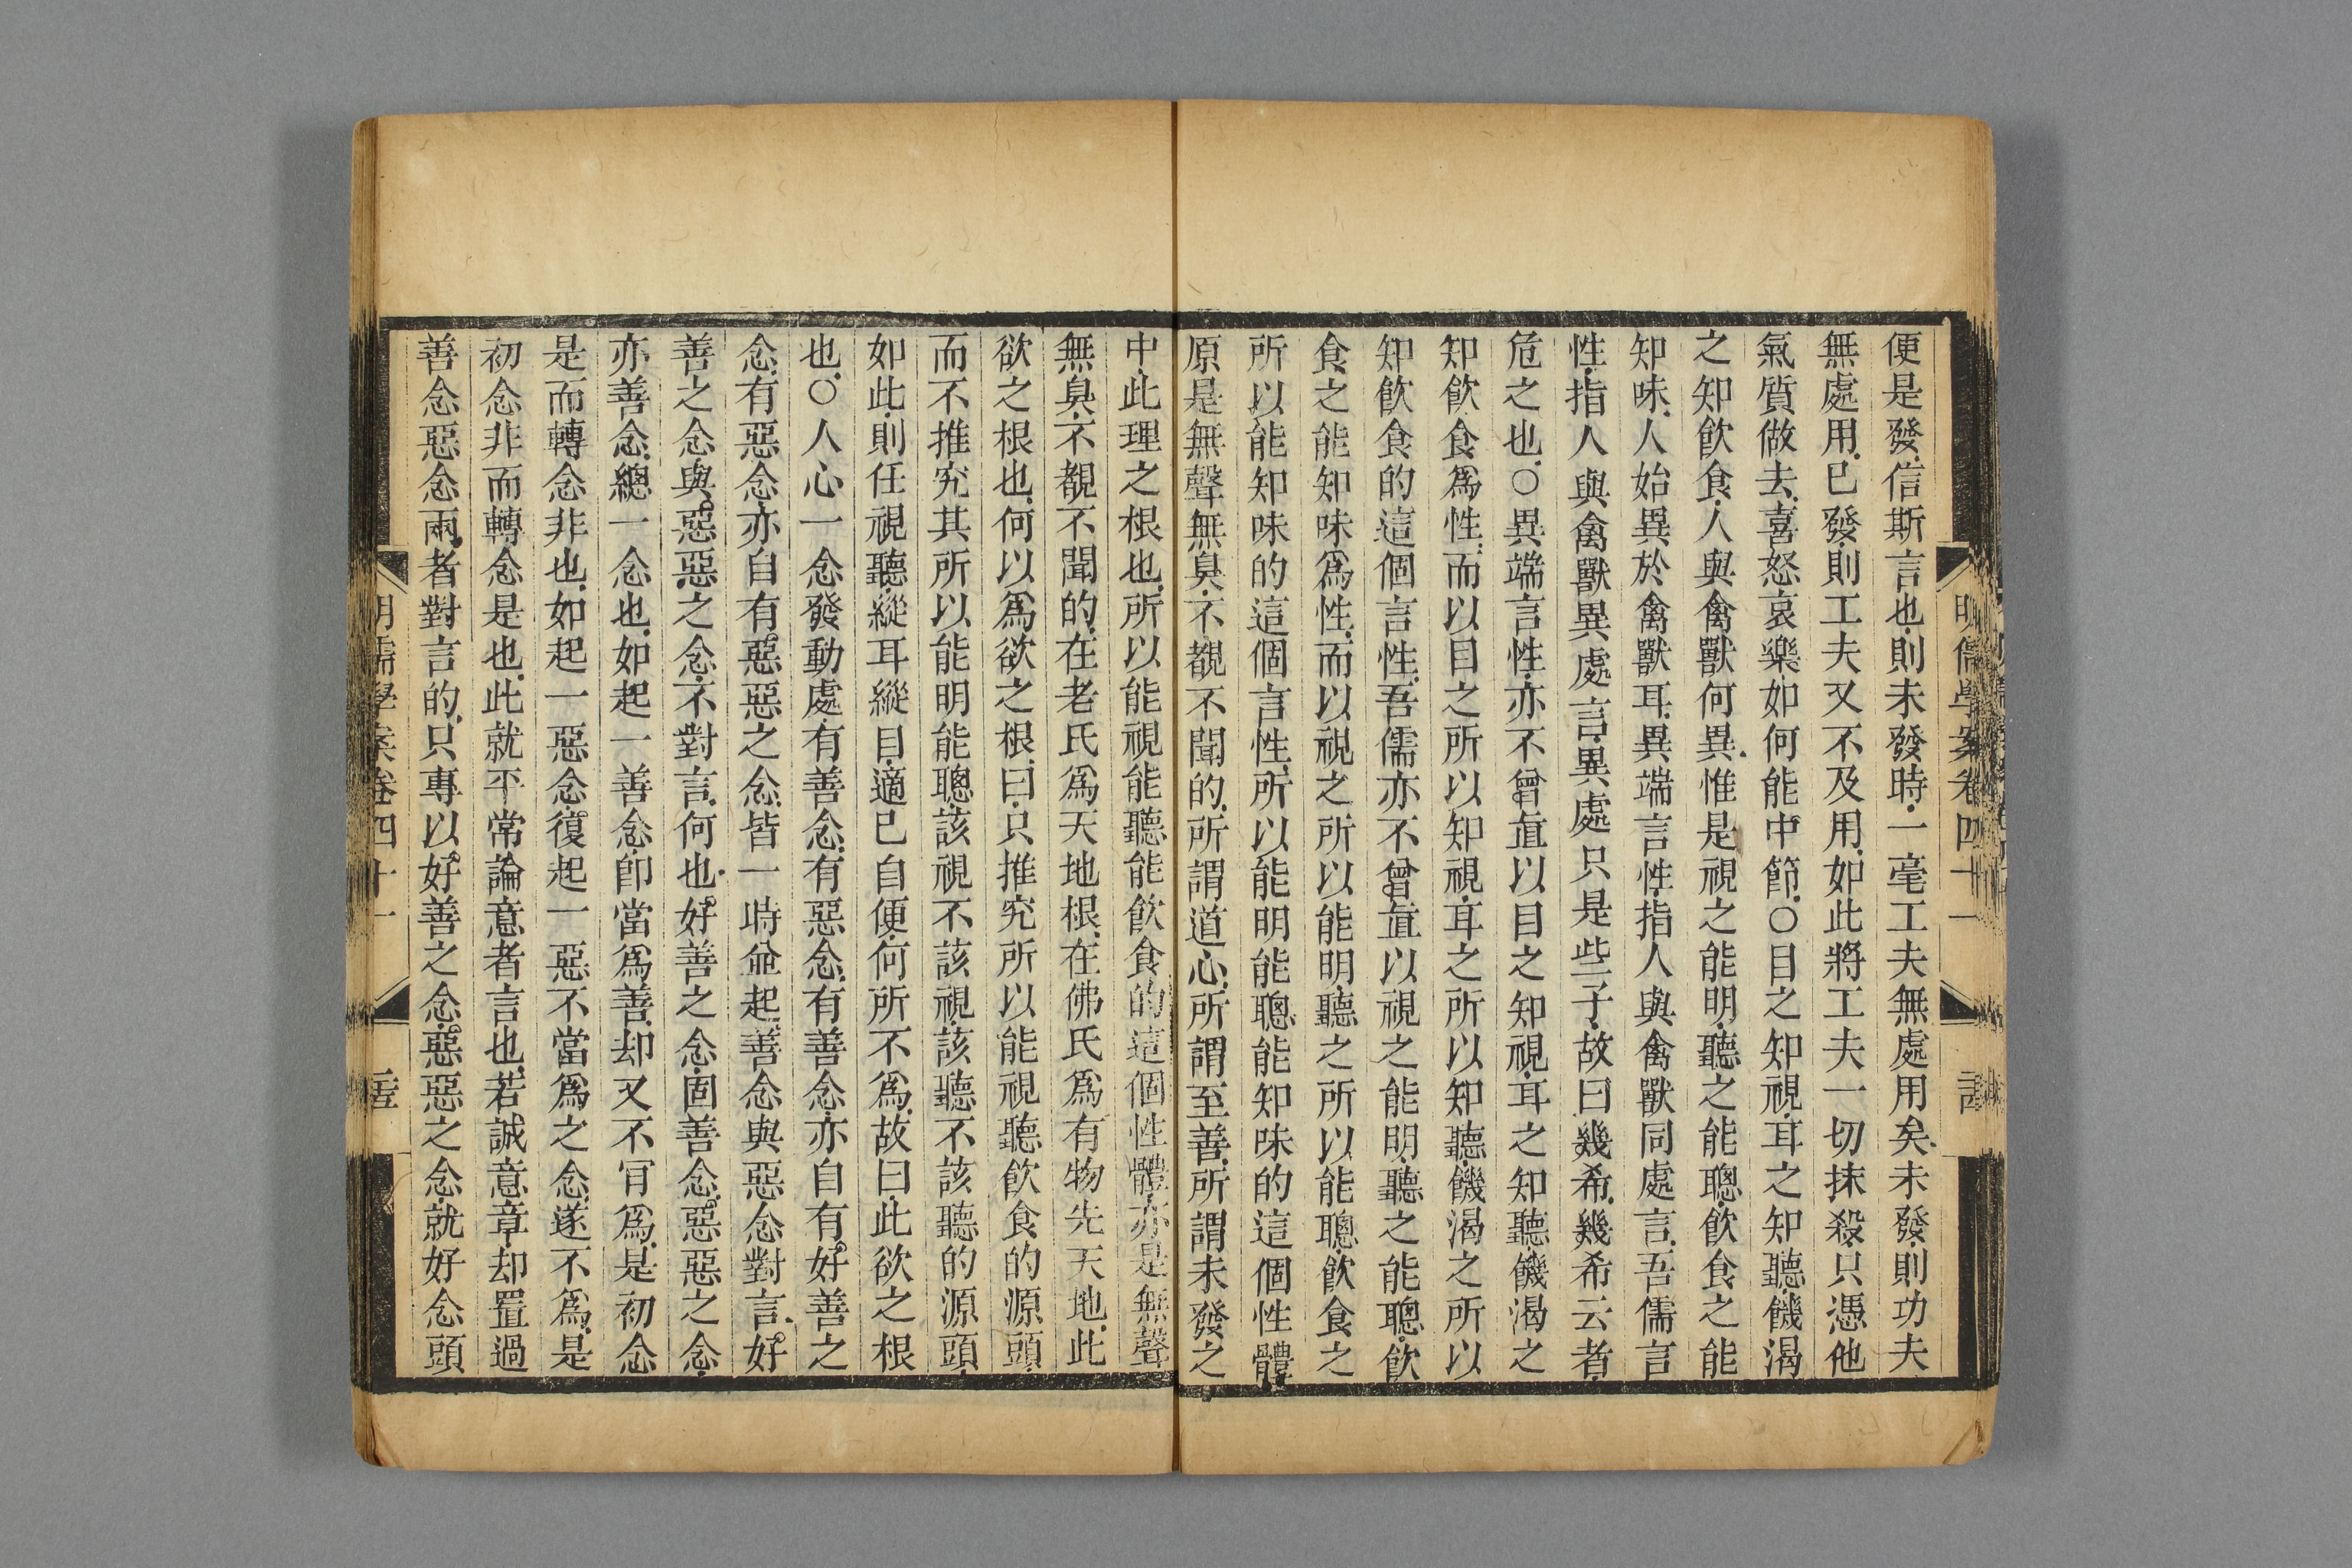 便是發信斯言也則未發時一毫工夫無處用矣未發則功夫
無處用已發則工夫又不及用如此將工夫一切抹殺只憑他
氣質做去喜怒哀樂如何能中節○目之知視耳之知聽饑渴
之知飮食人與禽獸何異惟是視之能明聽之能聰飮食之能
知味人始異於禽獸耳異端言性指人與禽獸同處言吾儒言
性指人與禽獸異處言異處只是些子故曰幾希幾希云者
危之也○異端言性亦不曾直以目之知視耳之知聽饑渴之
知飮食爲性而以目之所以知視耳之所以知聽饑渴之所以
知飮食的這個言性吾儒亦不曾直以視之能明聽之能聰飮
食之能知味爲性而以視之所以能明聽之所以能聰飮食之
所以能知味的這個言性所以能明能聰能知味的這個性體
原是無聲無臭不覩不聞的所謂道心所謂至善所謂未發之
中此理之根也所以能視能聽能飮食的這個性體亦是無聲
無臭不覩不聞的在老氏爲天地根在佛氏爲有物先天地此
欲之根也何以爲欲之根曰只推究所以能視聽飮食的源頭
而不推究其所以能明能聰該視不該視該聽不該聽的源頭
如此則任視聽縱耳縱目適己自便何所不爲故曰此欲之根
也○人心一念發動處有善念有惡念有善念亦自有好善之
念有惡念亦自有惡惡之念皆一時並起善念與惡念對言好
善之念與惡惡之念不對言何也好善之念固善念惡惡之念
亦善念總一念也如起一善念卽當爲善却又不肯爲是初念
是而轉念非也如起一惡念復起一惡不當爲之念遂不爲是
初念非而轉念是也此就平常論意者言也若誠意章却置過
善念惡念兩者對言的只專以好善之念惡惡之念就好念頭
明儒學案卷四十一